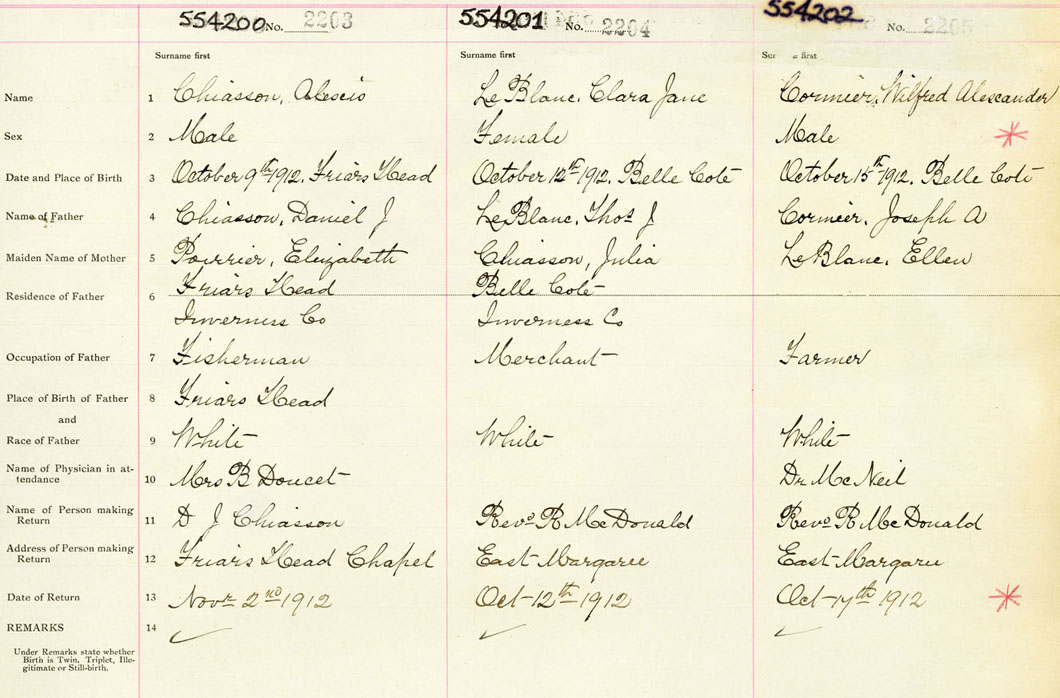 554200 No. 2203 554201 No. 2204 554202 No. 2205
Surname first Surname first Surname first
Name 1 Chiasson, Alexis LeBlanc, Clara Jane Cormier, Wilfred Alexander
Sex 2 Male Female Male
Date and Place of Birth 3 October 9th 1912. Friars Head October 12th 1912. Belle Cote October 15th 1912. Belle Cote
Name of Father 4 Chiasson, Daniel J LeBlanc, Thos J Cormier, Joseph A
Maiden Name of Mother 5 Poirrier, Elizabeth Chiasson, Julia LeBlanc, Ellen
Residence of Father 6 Friars Head Belle Cote
Inverness Co Inverness Co
Occupation of Father 7 Fisherman Merchant Farmer
Place of Birth of Father 8 Friars Head
and
Race of Father 9 White White White
Name of Physician in at-
tendance 10 Mrs B Doucet Dr McNeil
Name of Person making
Return 11 D J Chiasson Revd R McDonald Revd R McDonald
Address of Person making
Return 12 Friars Head Chapel East Margaree East Margaree
Date of Return 13 Novr 2nd 1912 Oct 12th 1912 Oct 17th 1912
REMARKS 14
Under Remarks state whether
Birth is Twin, Triplet, Ille-
gitimate or Still-birth.